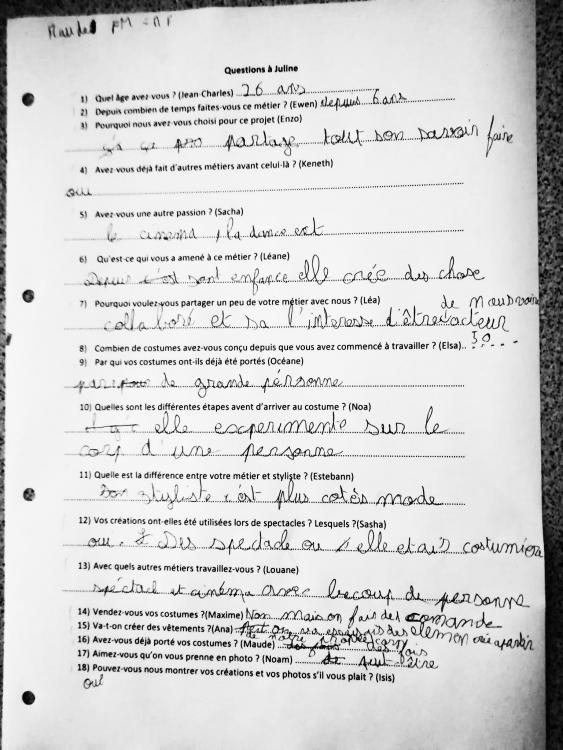 Questions à Juline
1) Quel âge avez vous ? (Jean-Charles) 26 ans
2) Depuis combien de temps faites-vous ce métier ? (Ewen) depuis 6 ans
3) Pourquoi nous avez-vous choisi pour ce projet (Enzo)
partage tout son savoir faire
4) Avez vous déjà fait d'autres métiers avant celui-là ? (Keneth)
oui
5) Avez-vous une autre passion ? (Sacha)
le cinema, la dance ext
6) Qu'est-ce qui vous a amené à ce métier ? (Léane)
Depui c'est sont enfance elle crée des chose
7) Pourquoi voulez-vous partager un peu de votre métier avec nous ? (Léa) de nous voire
collaboré et sa l'interesse d'être acteur
8) Combien de costumes avez-vous conçu depuis que vous avez commencé à travailler ? (Elsa).. 50
9) Par qui vos costumes ont-ils déjà été portés (Océane)
par de grande pérsonne
10) Quelles sont les différentes étapes avent d'arriver au costume ? (Noa)
elle esxperimente sur le
corp d'une personne
11) Quelle est la différence entre votre métier et styliste ? (Estebann)
styliste c'est plus cotés mode
12) Vos créations ont-elles été utilisées lors de spectacles ? Lesquels ?(Sasha)
oui. Des spectacle ou elle etait costumiere
13) Avec quels autres métiers travaillez-vous ? (Louane)
spéctacl et cinéma avec beacoup de personne
14) Vendez-vous vos costumes ?(Maxime) Non mais on fais des comande
15) Va-t-on créer des vêtements ?(Ana)
16) Avez-vous déjà porté vos costumes ? (Maude) des fois
17) Aimez-vous qu'on vous prenne en photo ? (Noam) peut être
18) Pouvez-vous nous montrer vos créations et vos photos s'il vous plait ? (Isis)
oui